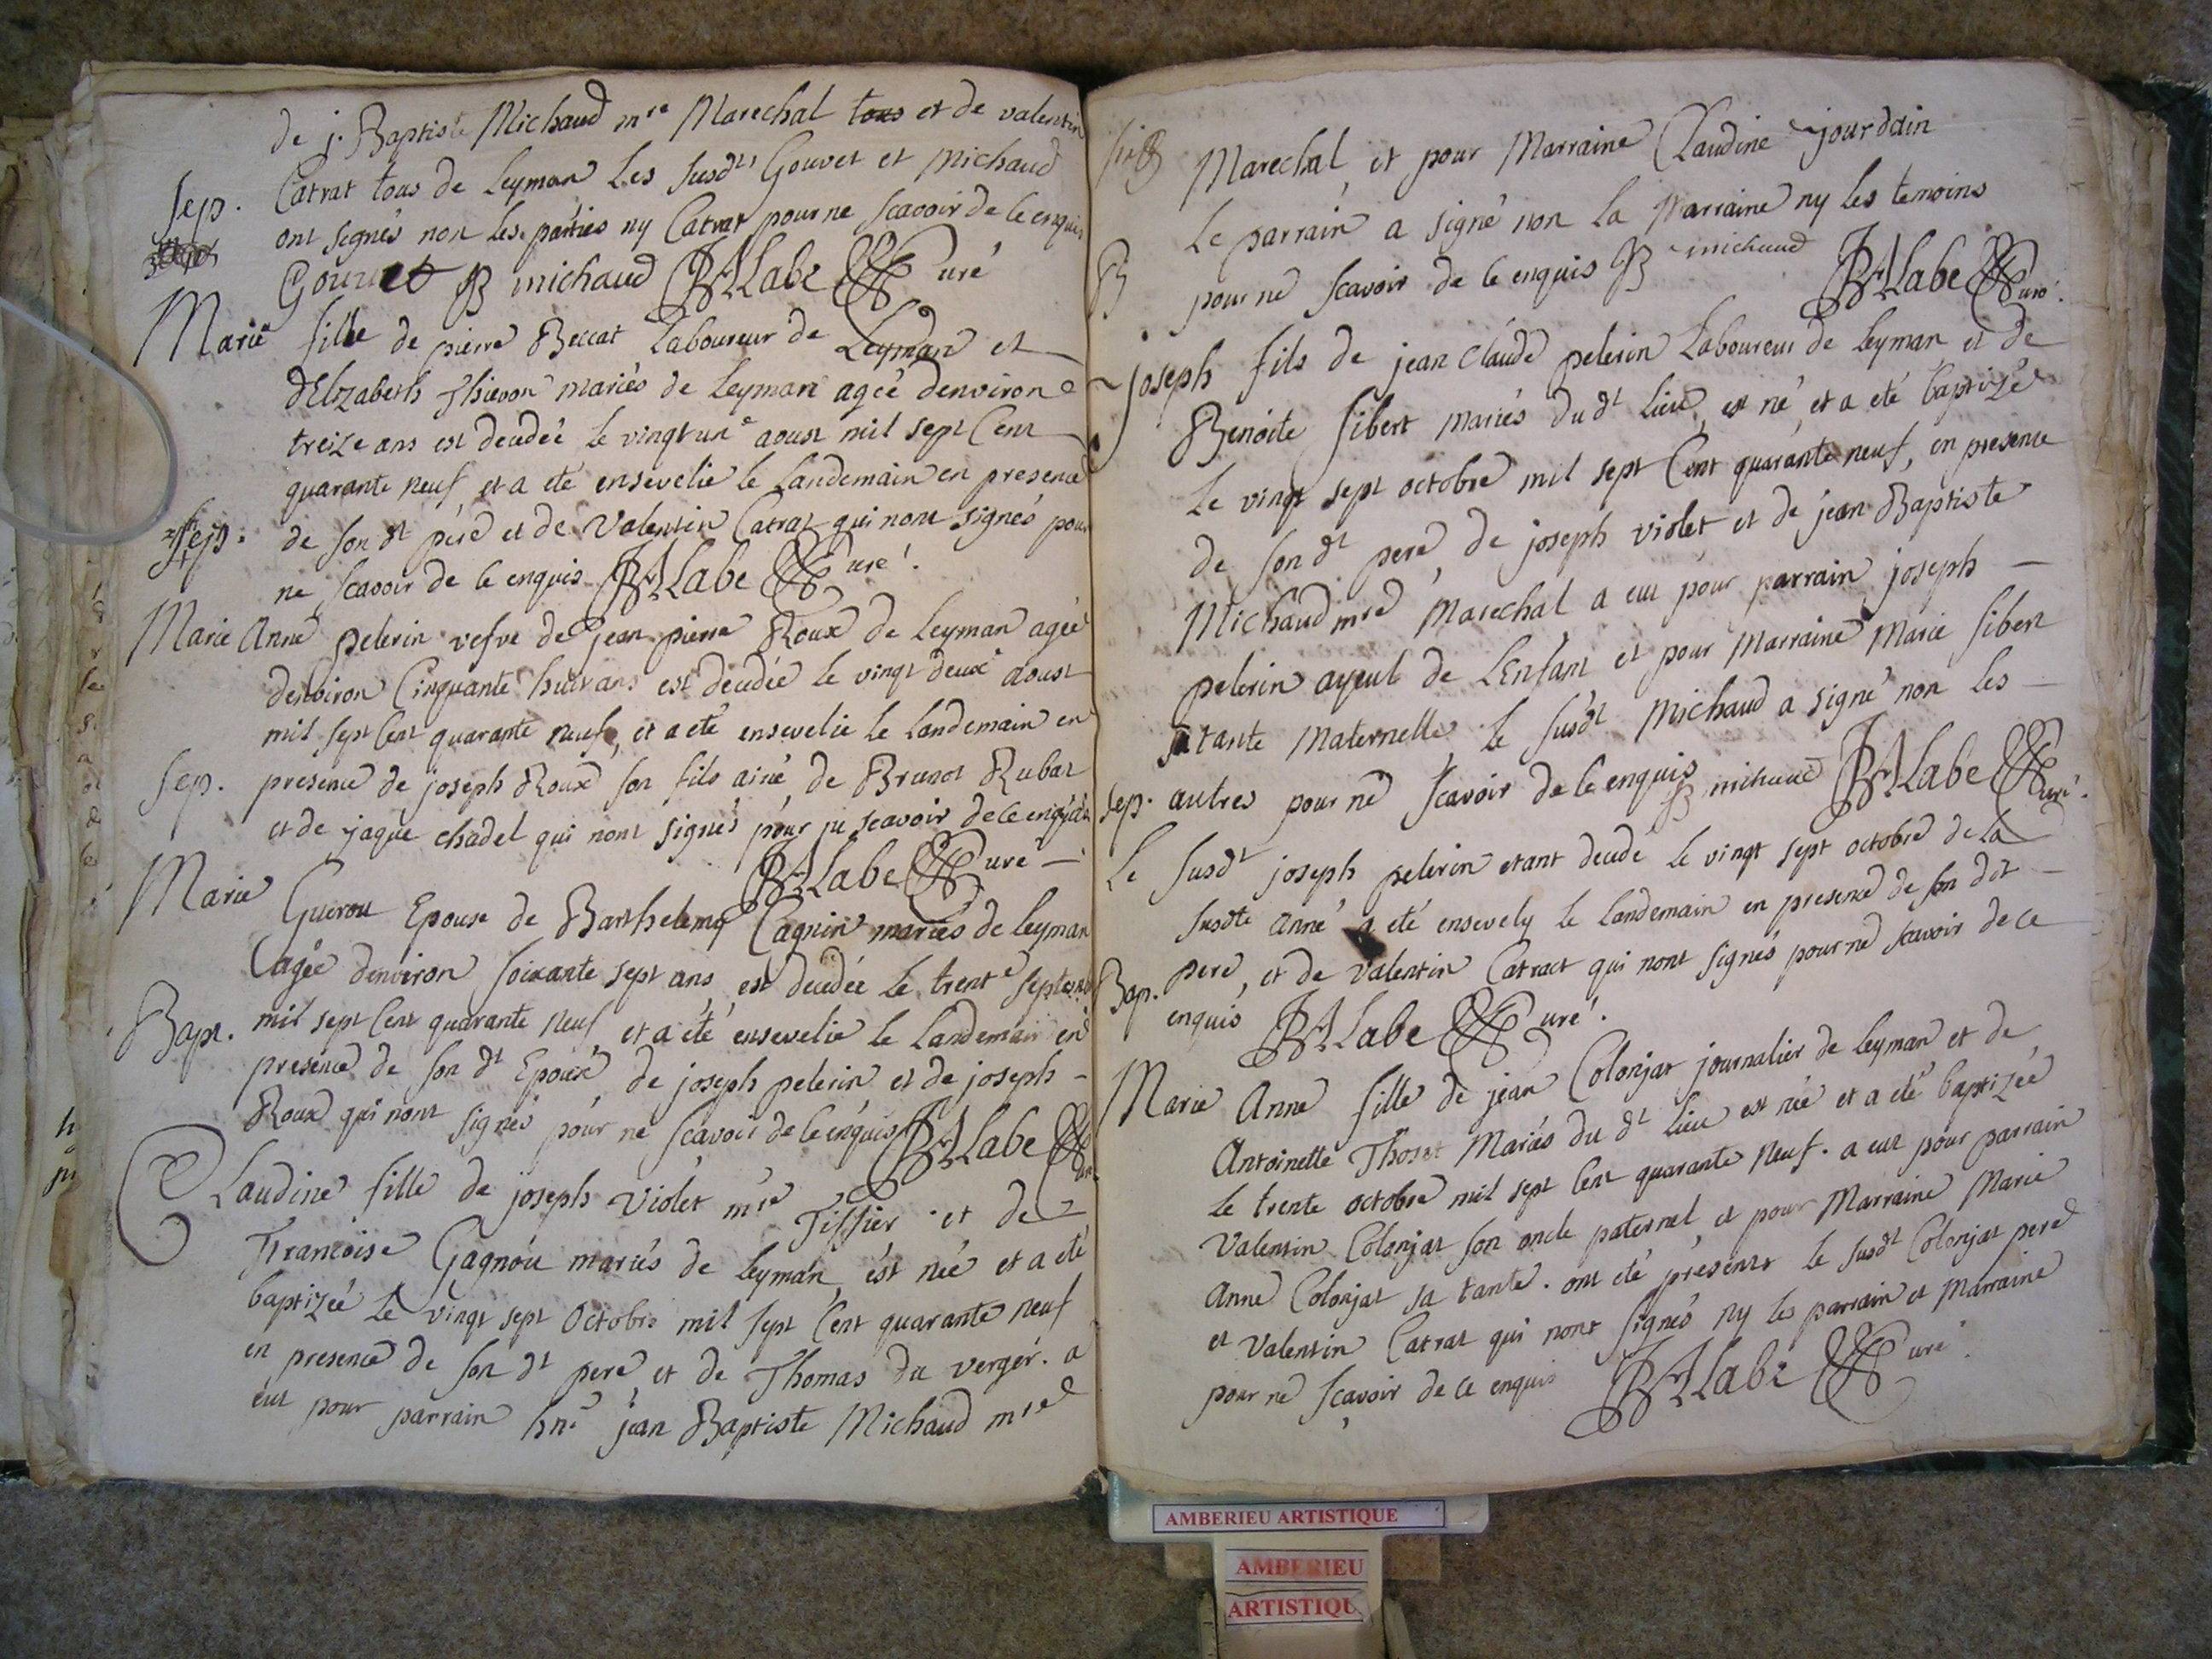 de j. Baptiste Michaud mre Marechal tous et de valentin
Sep. Catrat tous de Leyman Les susdts Gouvet et Michaud
ont signés non les parties ny Catrat pour ne scavoir de ce enquis
Gouvet JB michaud Labe Curé
Marie fille de pierre Beccat Laboureur de Leyman et
dElizabeth Thievon mariés de Leyman agée denviron
treize ans est decedeé le vingt un e aoust mil sept Cent
quarante neuf et a eté ensevelie le Landemain en presence
Sep. de son dt pere et de Valentin Catrat qui nont signés pour
ne scavoir de ce enquis Labe Curé.
Marie Anne pelerin vefve de jean pierre Roux de Leyman agée
denviron Cinquante huit ans est decedée le vingt deux e aoust
mil sept Cent quarante neuf, et a eté ensevelie le Landemain en
Sep. presence de joseph Roux son fils ainé de Brunot Rubat
et de jaque chadel qui nont signés pour ne scavoir de ce enquis
Labe Curé
Marie Guerou Epouse de Barthelemy Cagnin mariés de leyman
agée denviron soixante sept ans est decedée le trent e septembre
Bapt. mil sept Cent quarante neuf et a eté ensevelie le Landemain en
presence de son dt Epoux de joseph pelerin et de joseph
Roux qui nont signés pour ne scavoir de ce enquis Labe Curé
Claudine fille de joseph Violet mre Tissier et de
Francoise Gagnou mariés de Leyman, est née et a eté
baptizée Le vingt sept Octobre mil sept Cent quarante neuf
en presence de son dt pere et de Thomas du verger. a
eut pour parrain hne jean Baptiste Michaud mre
Marechal, et pour Marraine Claudine jourdain
Le parrain a signé non la Marraine ny les temoins
pour ne scavoir de ce enquis JB michaud Labe Curé.
joseph fils de jean Claude pelerin Laboureur de Leyman et de
Benoite Sibert mariés du dt Lieu, est né, et a eté baptizé
Le vingt sept octobre mil sept Cent quarante neuf, en presence
de son dt pere de joseph violet et de jean Baptiste
Michaud mre Marechal a eut pour parrain joseph
pelerin ayeul de LEnfant et pour Marraine Marie Sibert
sa tante Maternelle. Le susdt Michaud a signé non les
Sep. autres pour ne scavoir de ce enquis JB michaud Labe Curé.
Le susdt joseph pelerin etant decedé le vingt sept octobre de la
susdte anné a eté ensevely le Landemain en presence de son dit
Bap. pere, et de Valentin Catract qui nont signés pour ne scavoir de ce
enquis Labe Curé.
Marie Anne fille de jean Colonjat journalier de Leyman et de
Antoinette Thoset Mariés du dt Lieu est née et a eté baptizée
Le trente octobre mil sept Cent quarante neuf. a eut pour parrain
Valentin Colonjat son oncle paternel et pour Marraine Marie
Anne Colonjat sa tante. ont eté presents le susdt Colonjat pere
et Valentin Catrat qui nont signés ny les parrain et Marraine
pour ne scavoir de ce enquis Labe Curé.
AMBERIEU ARTISTIQUE
AMBERIEU
ARTISTIQU